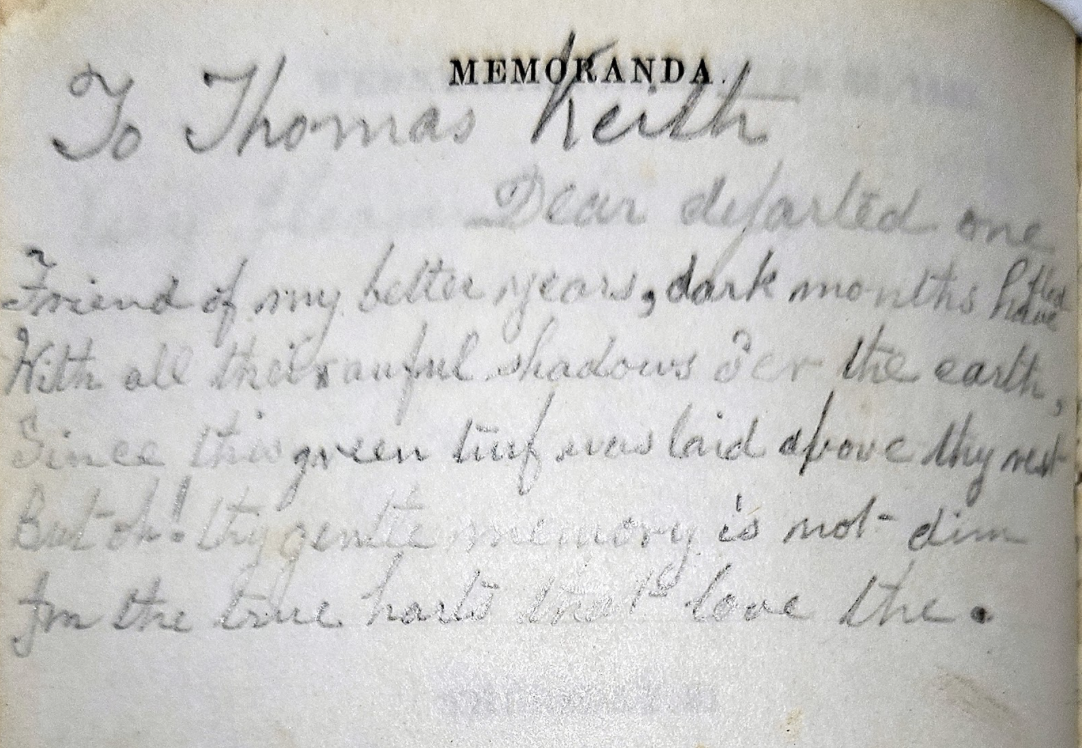 MEMORANDA.
To Thomas Keith
Dear departed one
Friend of my better years, dark months have fled
With all their auful shadows o'er the earth,
Since this green turf was laid above thy rest,
But oh! thy gentle memory is not dim
Im the true harts that love the.